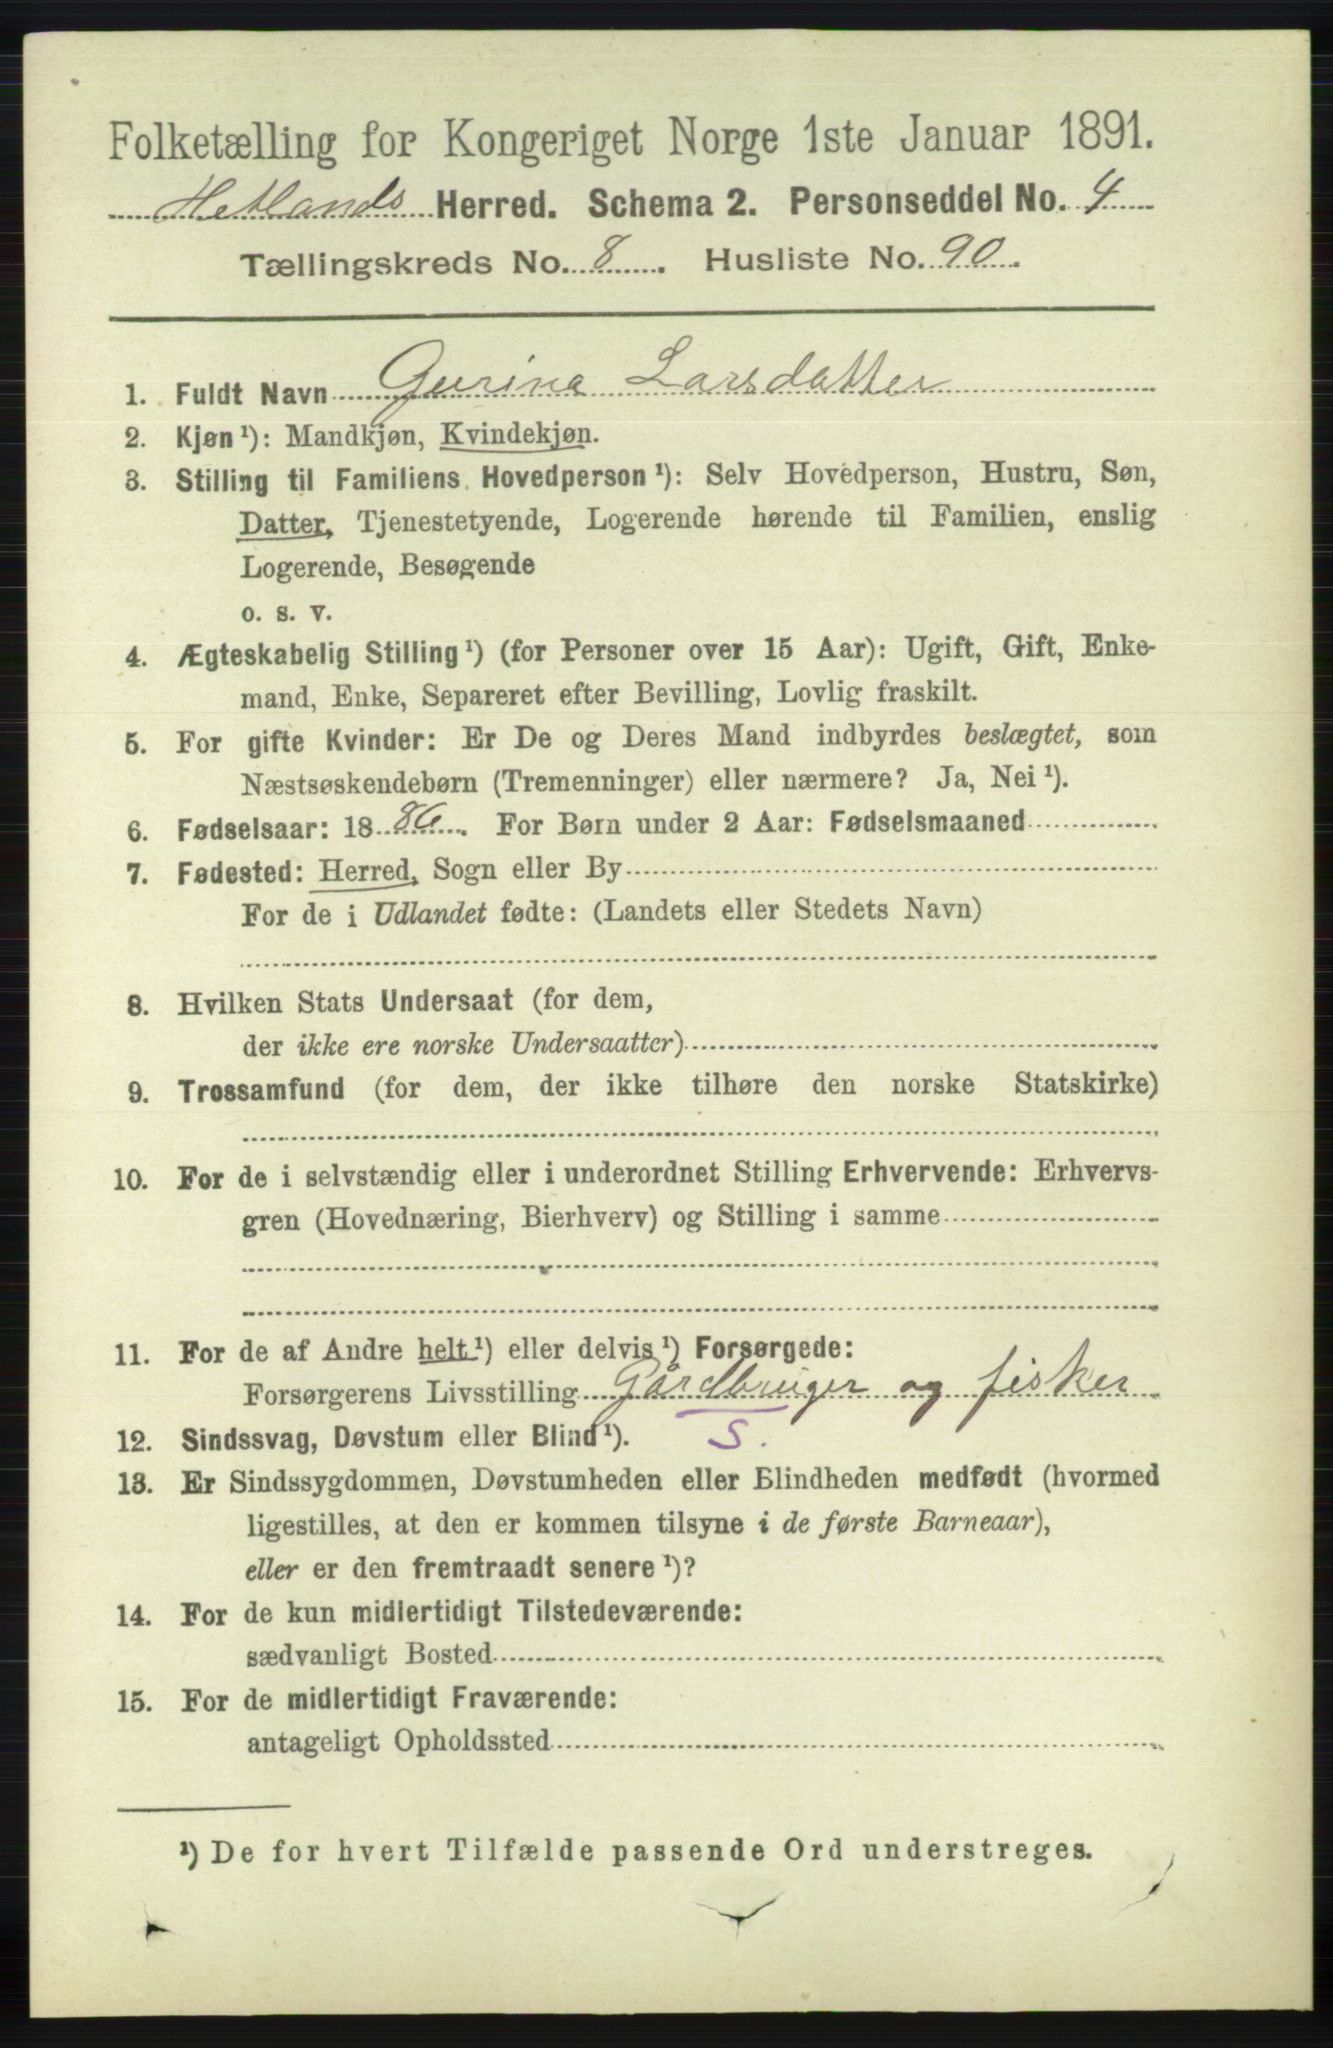 Folketælling for Kongeriget Norge 1ste Januar 1891.
Hetlands Herred. Schema 2. Personseddel No. 4
Tællingskreds No. 8. Husliste No. 90.
1. Fuldt Navn Gurina Larsdatter
2. Kjøn ¹): Mandkjøn, Kvindekjøn.
3. Stilling til Familiens Hovedperson ¹): Selv Hovedperson, Hustru, Søn,
Datter, Tjenestetyende, Logerende hørende til Familien, enslig
Logerende, Besøgende
o. s. v.
4. Ægteskabelig Stilling ¹) (for Personer over 15 Aar): Ugift, Gift, Enke-
mand, Enke, Separeret efter Bevilling, Lovlig fraskilt.
5. For gifte Kvinder: Er De og Deres Mand indbyrdes beslægtet, som
Næstsøskendebørn (Tremenninger) eller nærmere? Ja, Nei ¹).
6. Fødselsaar: 1886. For Børn under 2 Aar: Fødselsmaaned
7. Fødested: Herred, Sogn eller By
For de i Udlandet fødte: (Landets eller Stedets Navn)
8. Hvilken Stats Undersaat (for dem,
der ikke ere norske Undersaatter)
9. Trossamfund (for dem, der ikke tilhøre den norske Statskirke)
10. For de i selvstændig eller i underordnet Stilling Erhvervende: Erhvervs-
gren (Hovednæring, Bierhverv) og Stilling i samme
11. For de af Andre helt ¹) eller delvis ¹) Forsørgede:
Forsørgerens Livsstilling Gårdbruger og fisker
12. Sindssvag, Døvstum eller Blind ¹). S.
13. Er Sindssygdommen, Døvstumheden eller Blindheden medfødt (hvormed
ligestilles, at den er kommen tilsyne i de første Barneaar),
eller er den fremtraadt senere ¹)?
14. For de kun midlertidigt Tilstedeværende:
sædvanligt Bosted
15. For de midlertidigt Fraværende:
antageligt Opholdssted
¹) De for hvert Tilfælde passende Ord understreges.